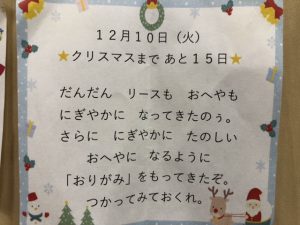 12月10日（火）
★クリスマスまで あと15日★
だんだん リースも おへやも
にぎやかに なってきたのぅ。
さらに にぎやかに たのしい
おへやに なるように
「おりがみ」をもってきたぞ。
つかってみておくれ。